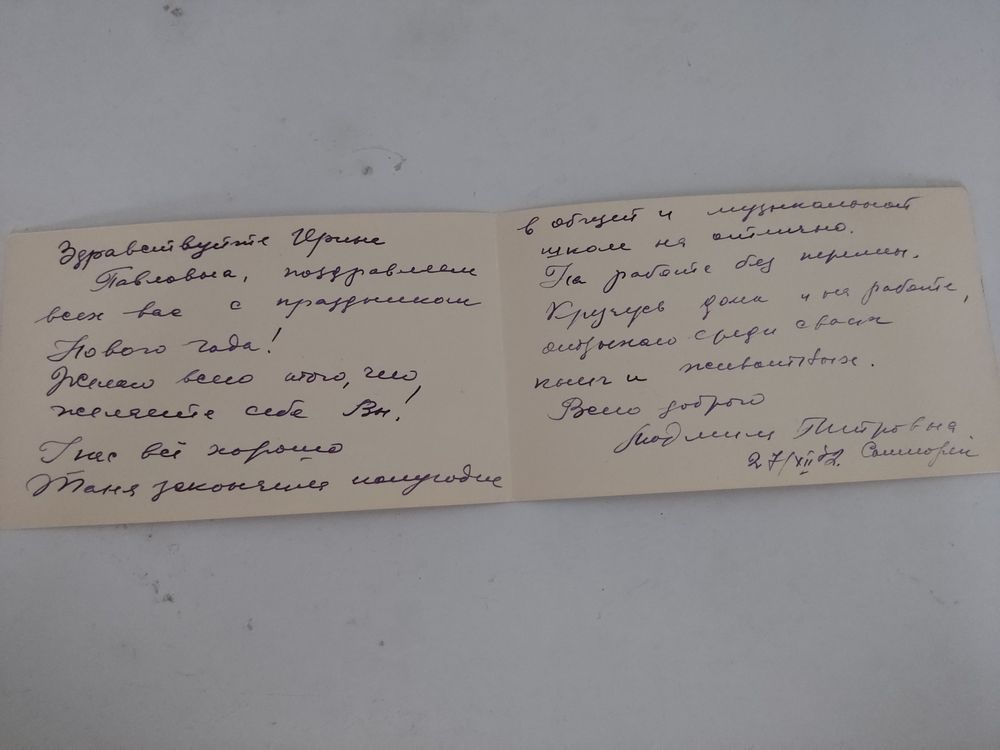 Здравствуйте Ирина
Павловна, поздравляем
всех вас с праздником
Нового года!
Желаю всего того, чего
желаете себе Вы!
У нас всё хорошо
Таня закончила полугодие
в общей и музыкальной
школе на отлично.
На работе без перемен.
Кручусь дома и на работе,
отдыхаю среди своих
книг и животных.
Всего доброго
Людмила Петровна
27/XII